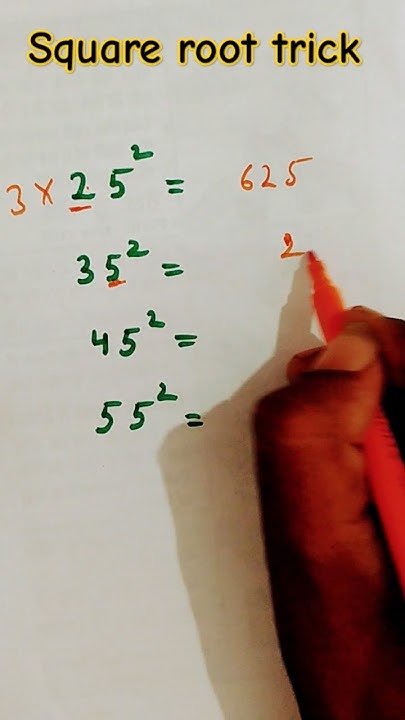 Square root trick
3 × 25² = 625
35² = 2
45² =
55² =